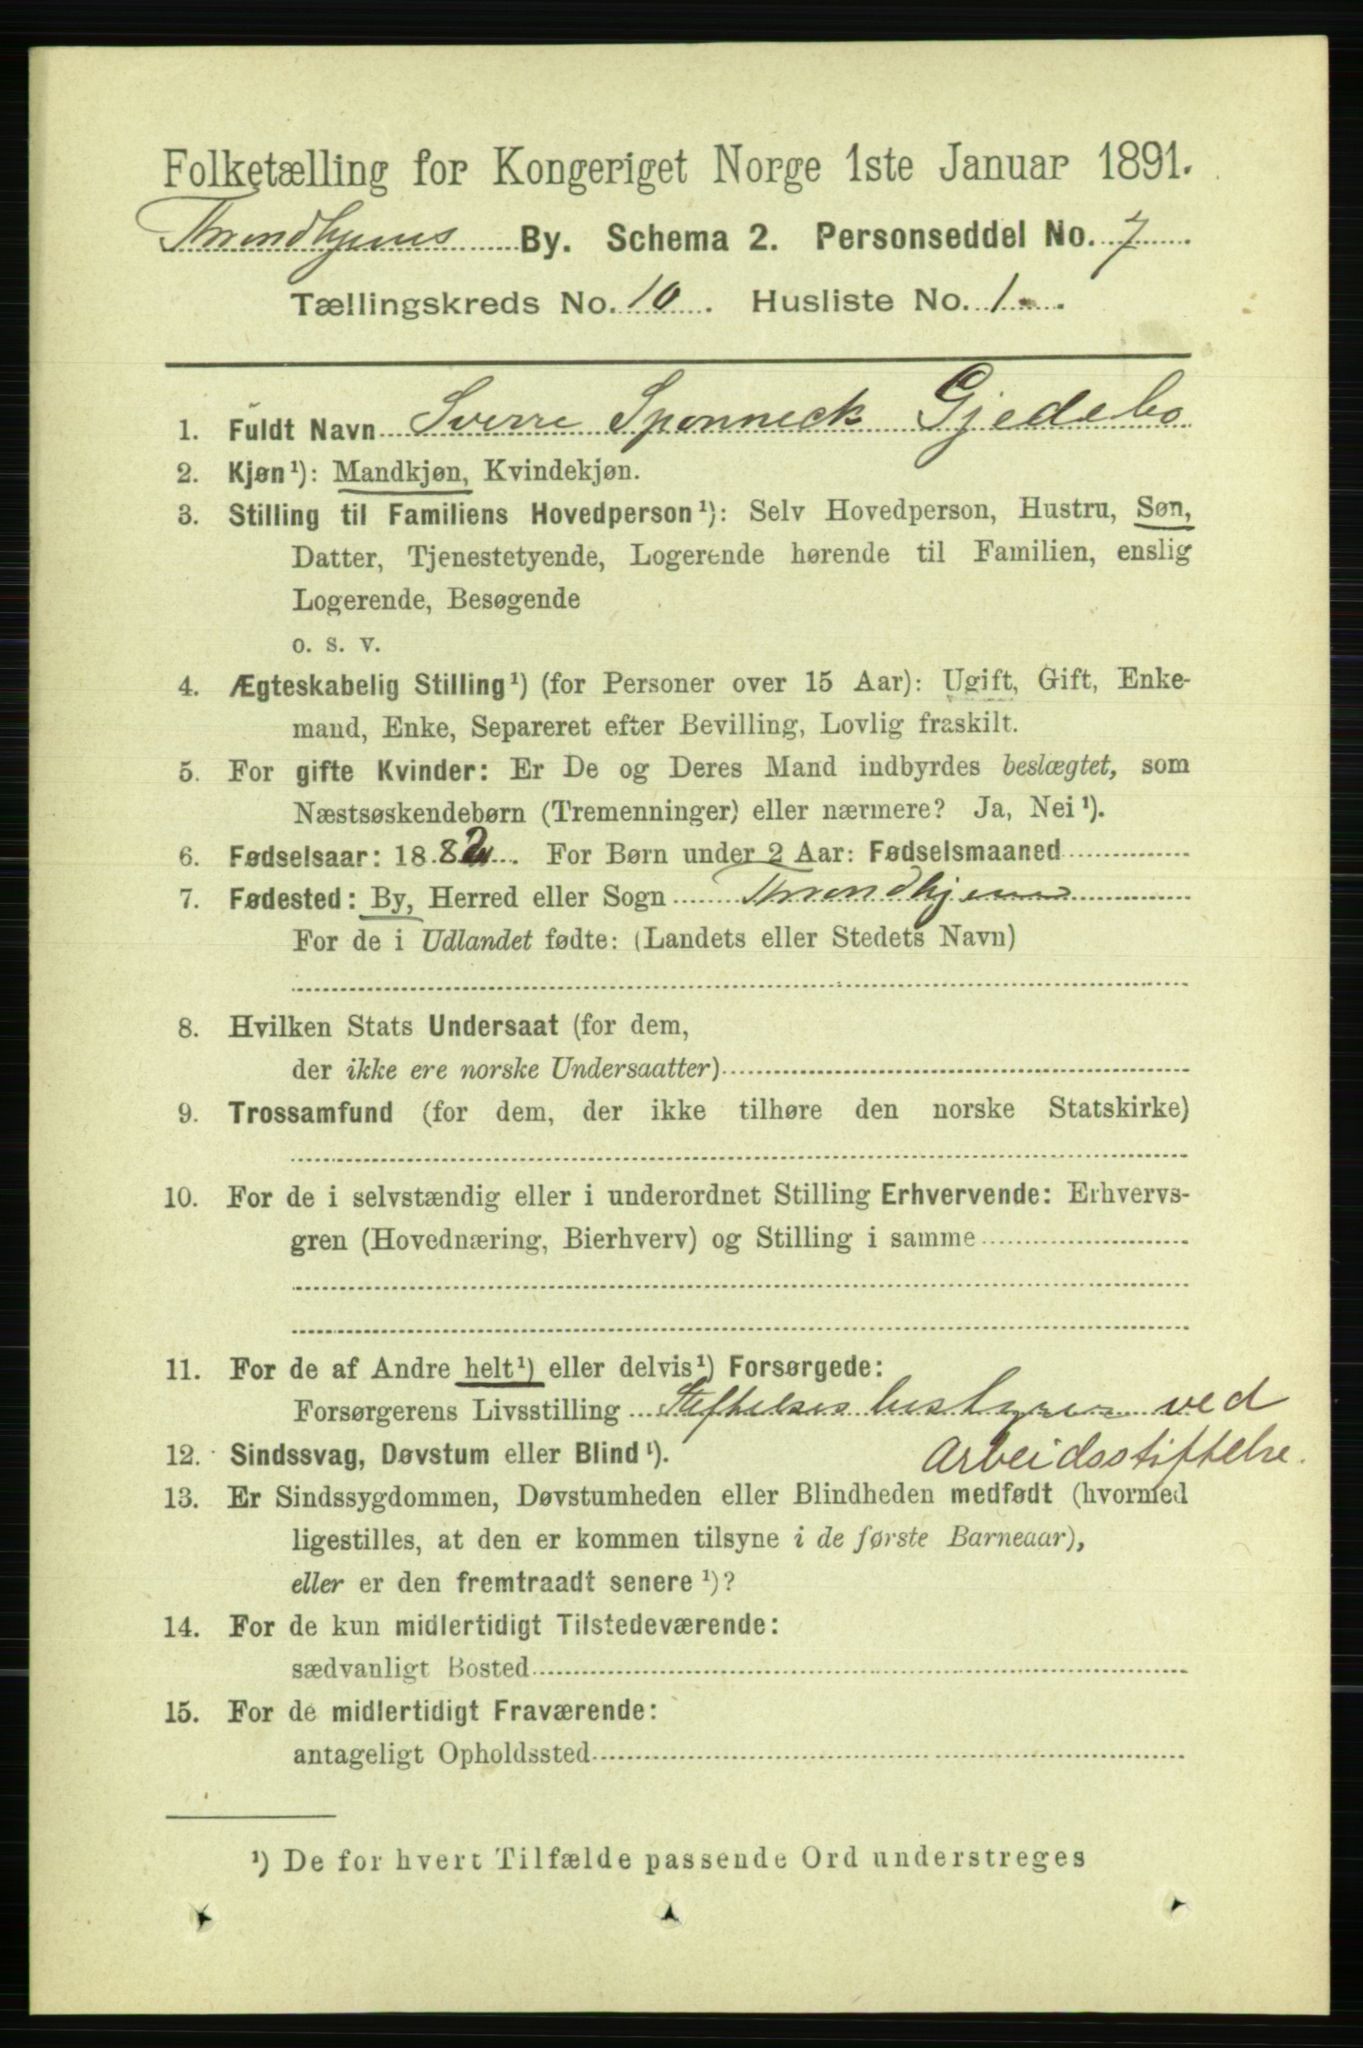 Folketælling for Kongeriget Norge 1ste Januar 1891.
Throndhjems By. Schema 2. Personseddel No. 7
Tællingskreds No. 10. Husliste No. 1.
1. Fuldt Navn Sverre Sponneck Gjedebo
2. Kjøn¹): Mandkjøn, Kvindekjøn.
3. Stilling til Familiens Hovedperson¹): Selv Hovedperson, Hustru, Søn,
Datter, Tjenestetyende, Logerende hørende til Familien, enslig
Logerende, Besøgende
o. s. v.
4. Ægteskabelig Stilling¹) (for Personer over 15 Aar): Ugift, Gift, Enke-
mand, Enke, Separeret efter Bevilling, Lovlig fraskilt.
5. For gifte Kvinder: Er De og Deres Mand indbyrdes beslægtet, som
Næstsøskendebørn (Tremenninger) eller nærmere? Ja, Nei¹).
6. Fødselsaar: 1882. For Børn under 2 Aar: Fødselsmaaned
7. Fødested: By, Herred eller Sogn Throndhjem
For de i Udlandet fødte: (Landets eller Stedets Navn)
8. Hvilken Stats Undersaat (for dem,
der ikke ere norske Undersaatter)
9. Trossamfund (for dem, der ikke tilhøre den norske Statskirke)
10. For de i selvstændig eller i underordnet Stilling Erhvervende: Erhvervs-
gren (Hovednæring, Bierhverv) og Stilling i samme
11. For de af Andre helt¹) eller delvis¹) Forsørgede:
Forsørgerens Livsstilling Stiftelsesbestyrer ved
Arbeidsstiftelse.
12. Sindssvag, Døvstum eller Blind¹).
13. Er Sindssygdommen, Døvstumheden eller Blindheden medfødt (hvormed
ligestilles, at den er kommen tilsyne i de første Barneaar),
eller er den fremtraadt senere¹)?
14. For de kun midlertidigt Tilstedeværende:
sædvanligt Bosted
15. For de midlertidigt Fraværende:
antageligt Opholdssted
¹) De for hvert Tilfælde passende Ord understreges